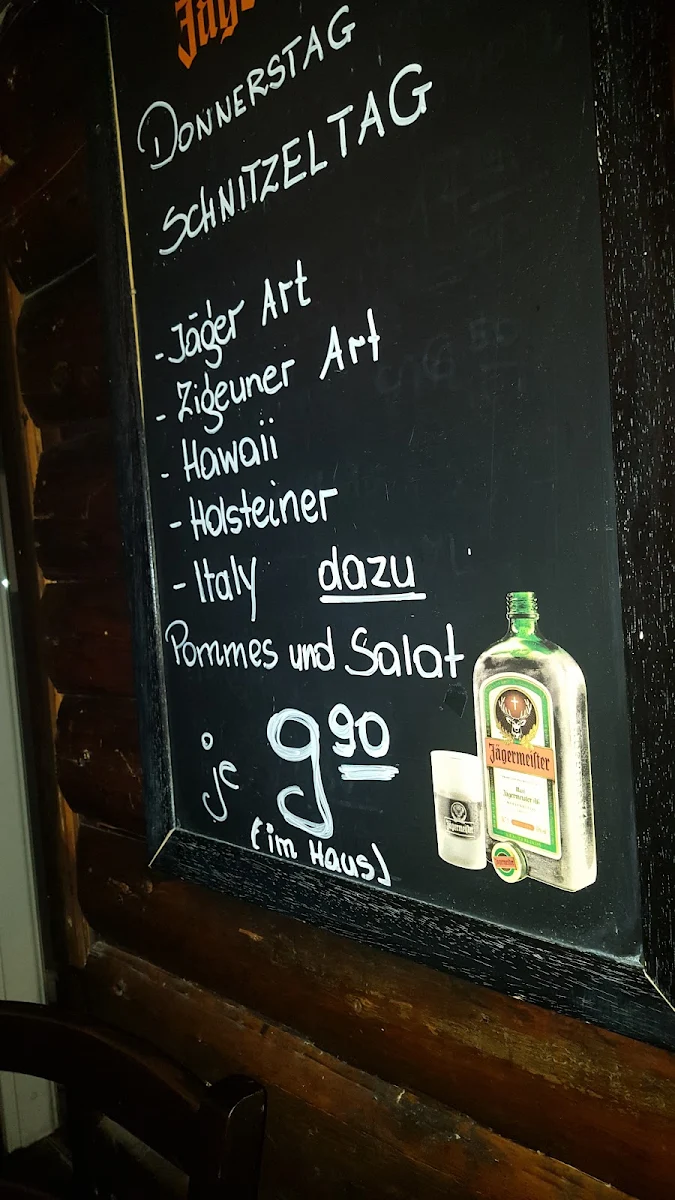 Jäge
DONNERSTAG
SCHNITZELTAG
- Jäger Art
- Zigeuner Art
- Hawaii
- Holsteiner
- Italy dazu
Pommes und Salat
je 9 90
(im Haus)
Jägermeister
Jägermeister